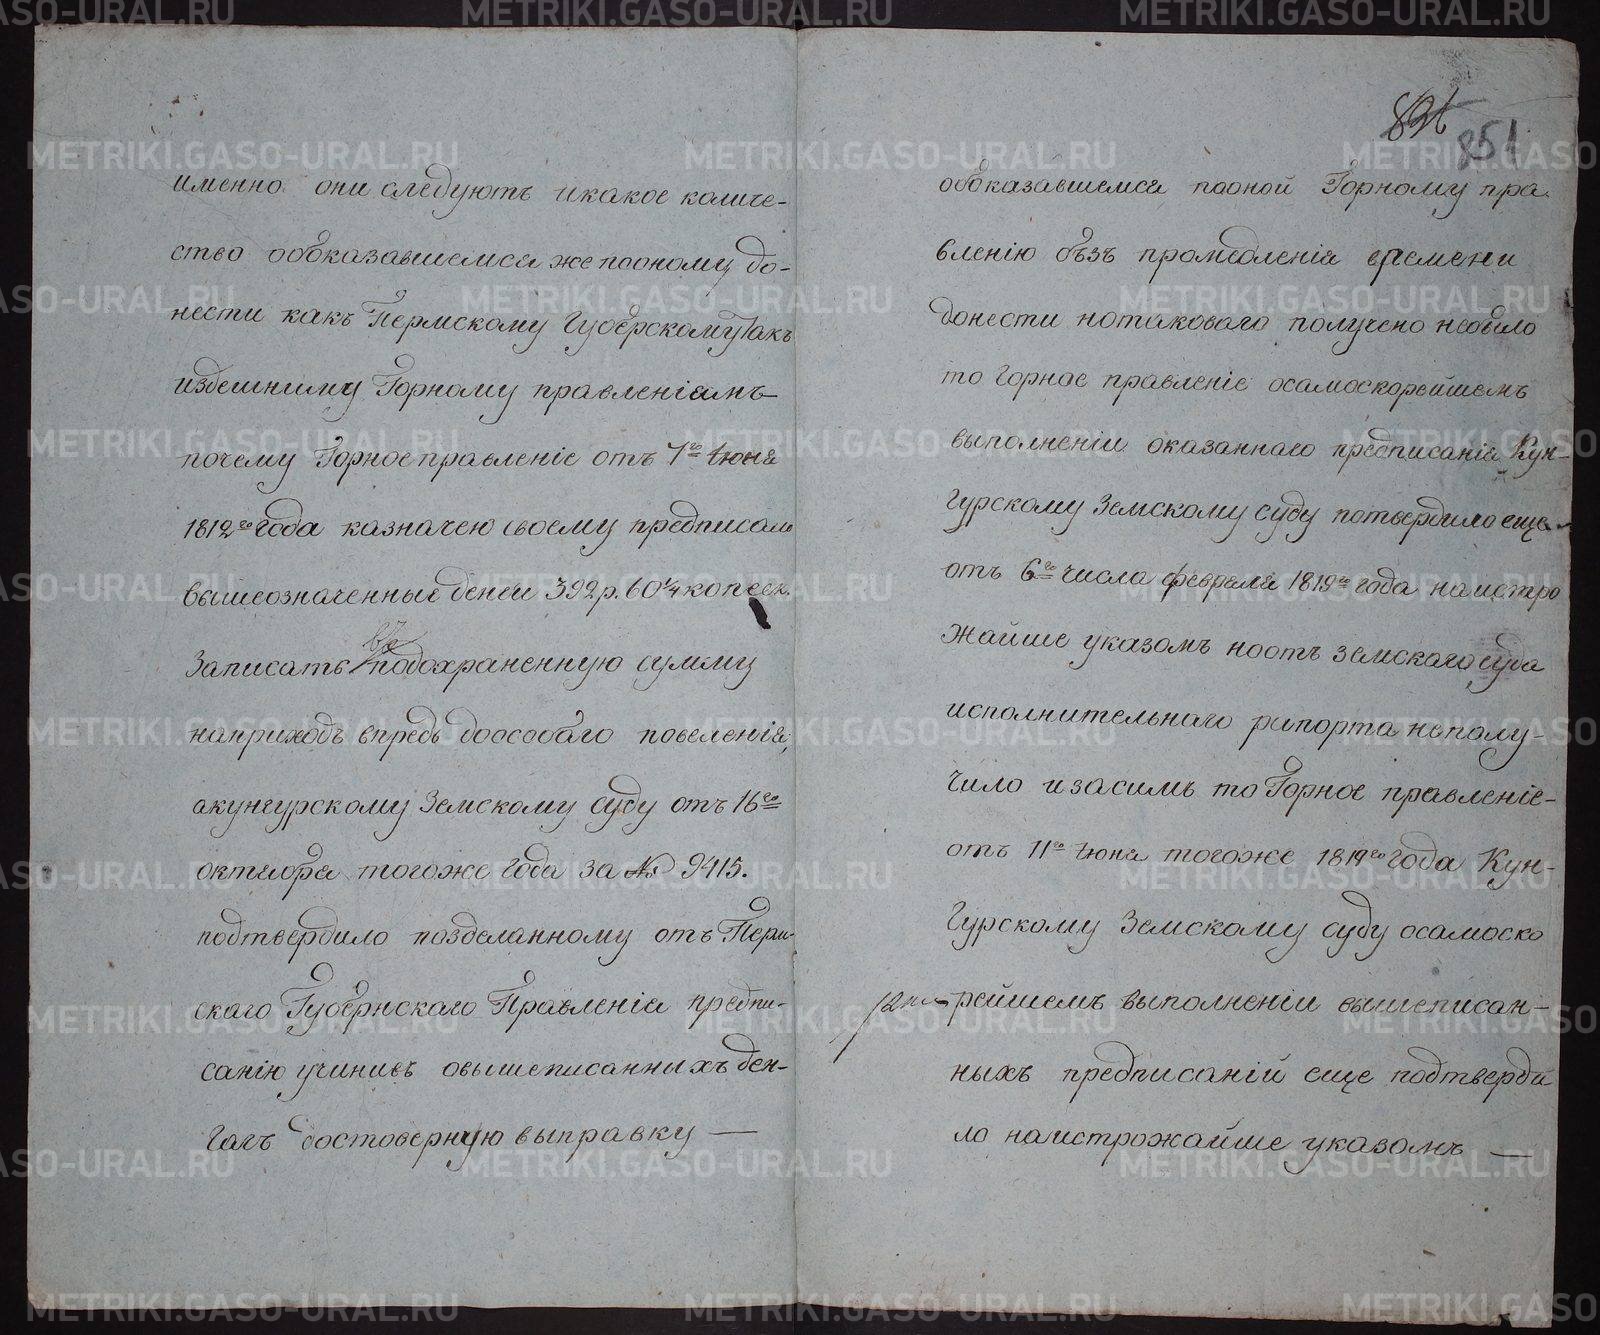 именно они следуютъ икакое количе-
ство обоказавшемся же пооному до-
нести какъ Пермскому Губерскому такъ
издешнимy Горному правленіямъ
почему Горное правленіе отъ 7го Iюня
1812го года казначею своему предписало
вышеозначенные денги 392 р. 60¼ копеек.
Записать въ подохраненную сумму
наприходъ впредь доособаго повеленія,
акунгурскому Земскому суду отъ 16го
октября тогоже года за № 9415.
подтвердило позделанному отъ Перм-
скаго Губернскаго Правленія предпи-
санію учинивъ овышеписанныхъ ден-
гахъ достоверную выправку —
851
обоказавшемся пооной Горному пра-
вленію безъ промедленія времени
донести нотаковаго получено небыло
то Горное правленіе осамоскорейшемъ
выполненіи оказаннаго предписанія Кун-
гурскому Земскому суду потвердило еще
отъ 6го числа февраля 1819го года наистро
жайше указомъ ноотъ земскаго суда
исполнительнаго рипорта неполу-
чило изасимъ то Горное правленіе-
отъ 11го Iюня тогоже 1819го года Кун-
гурскому Земскому суду осамоско
рейшемъ выполненіи вышеписан-
ныхъ предписаній еще подтверди
ло наистрожайше указомъ —
METRIKI.GASO-URAL.RU